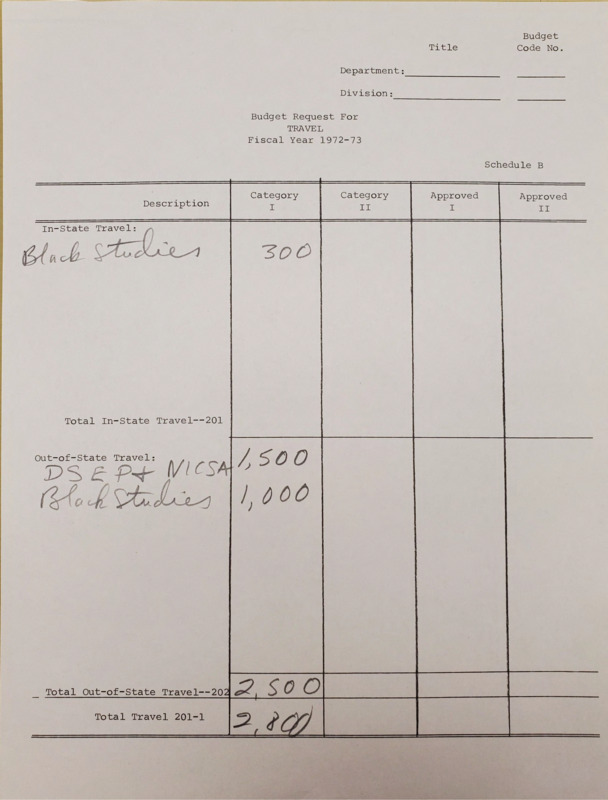 Budget
Title Code No.
Department:
Division:
Budget Request For
TRAVEL
Fiscal Year 1972-73
Schedule B
Description Category I Category II Approved I Approved II
In-State Travel:
Black Studies 300
Total In-State Travel--201
Out-of-State Travel: 1,500
DSEP+ NICSA
Black Studies 1,000
Total Out-of-State Travel--202 2,500
Total Travel 201-1 2,800